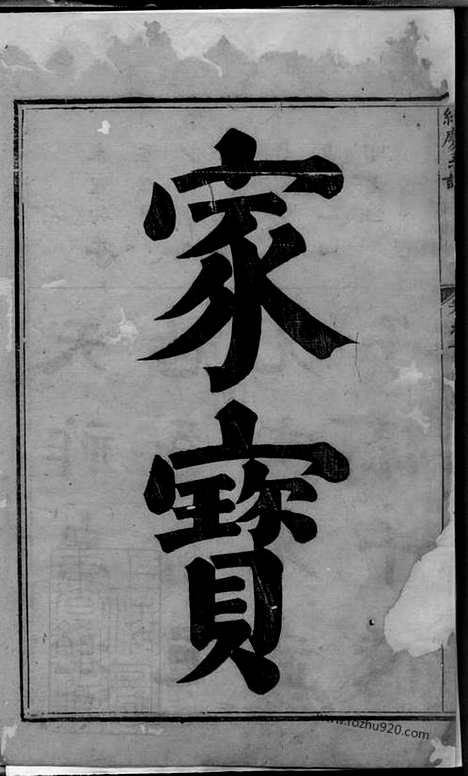 家
寶
www.fozhu920.com